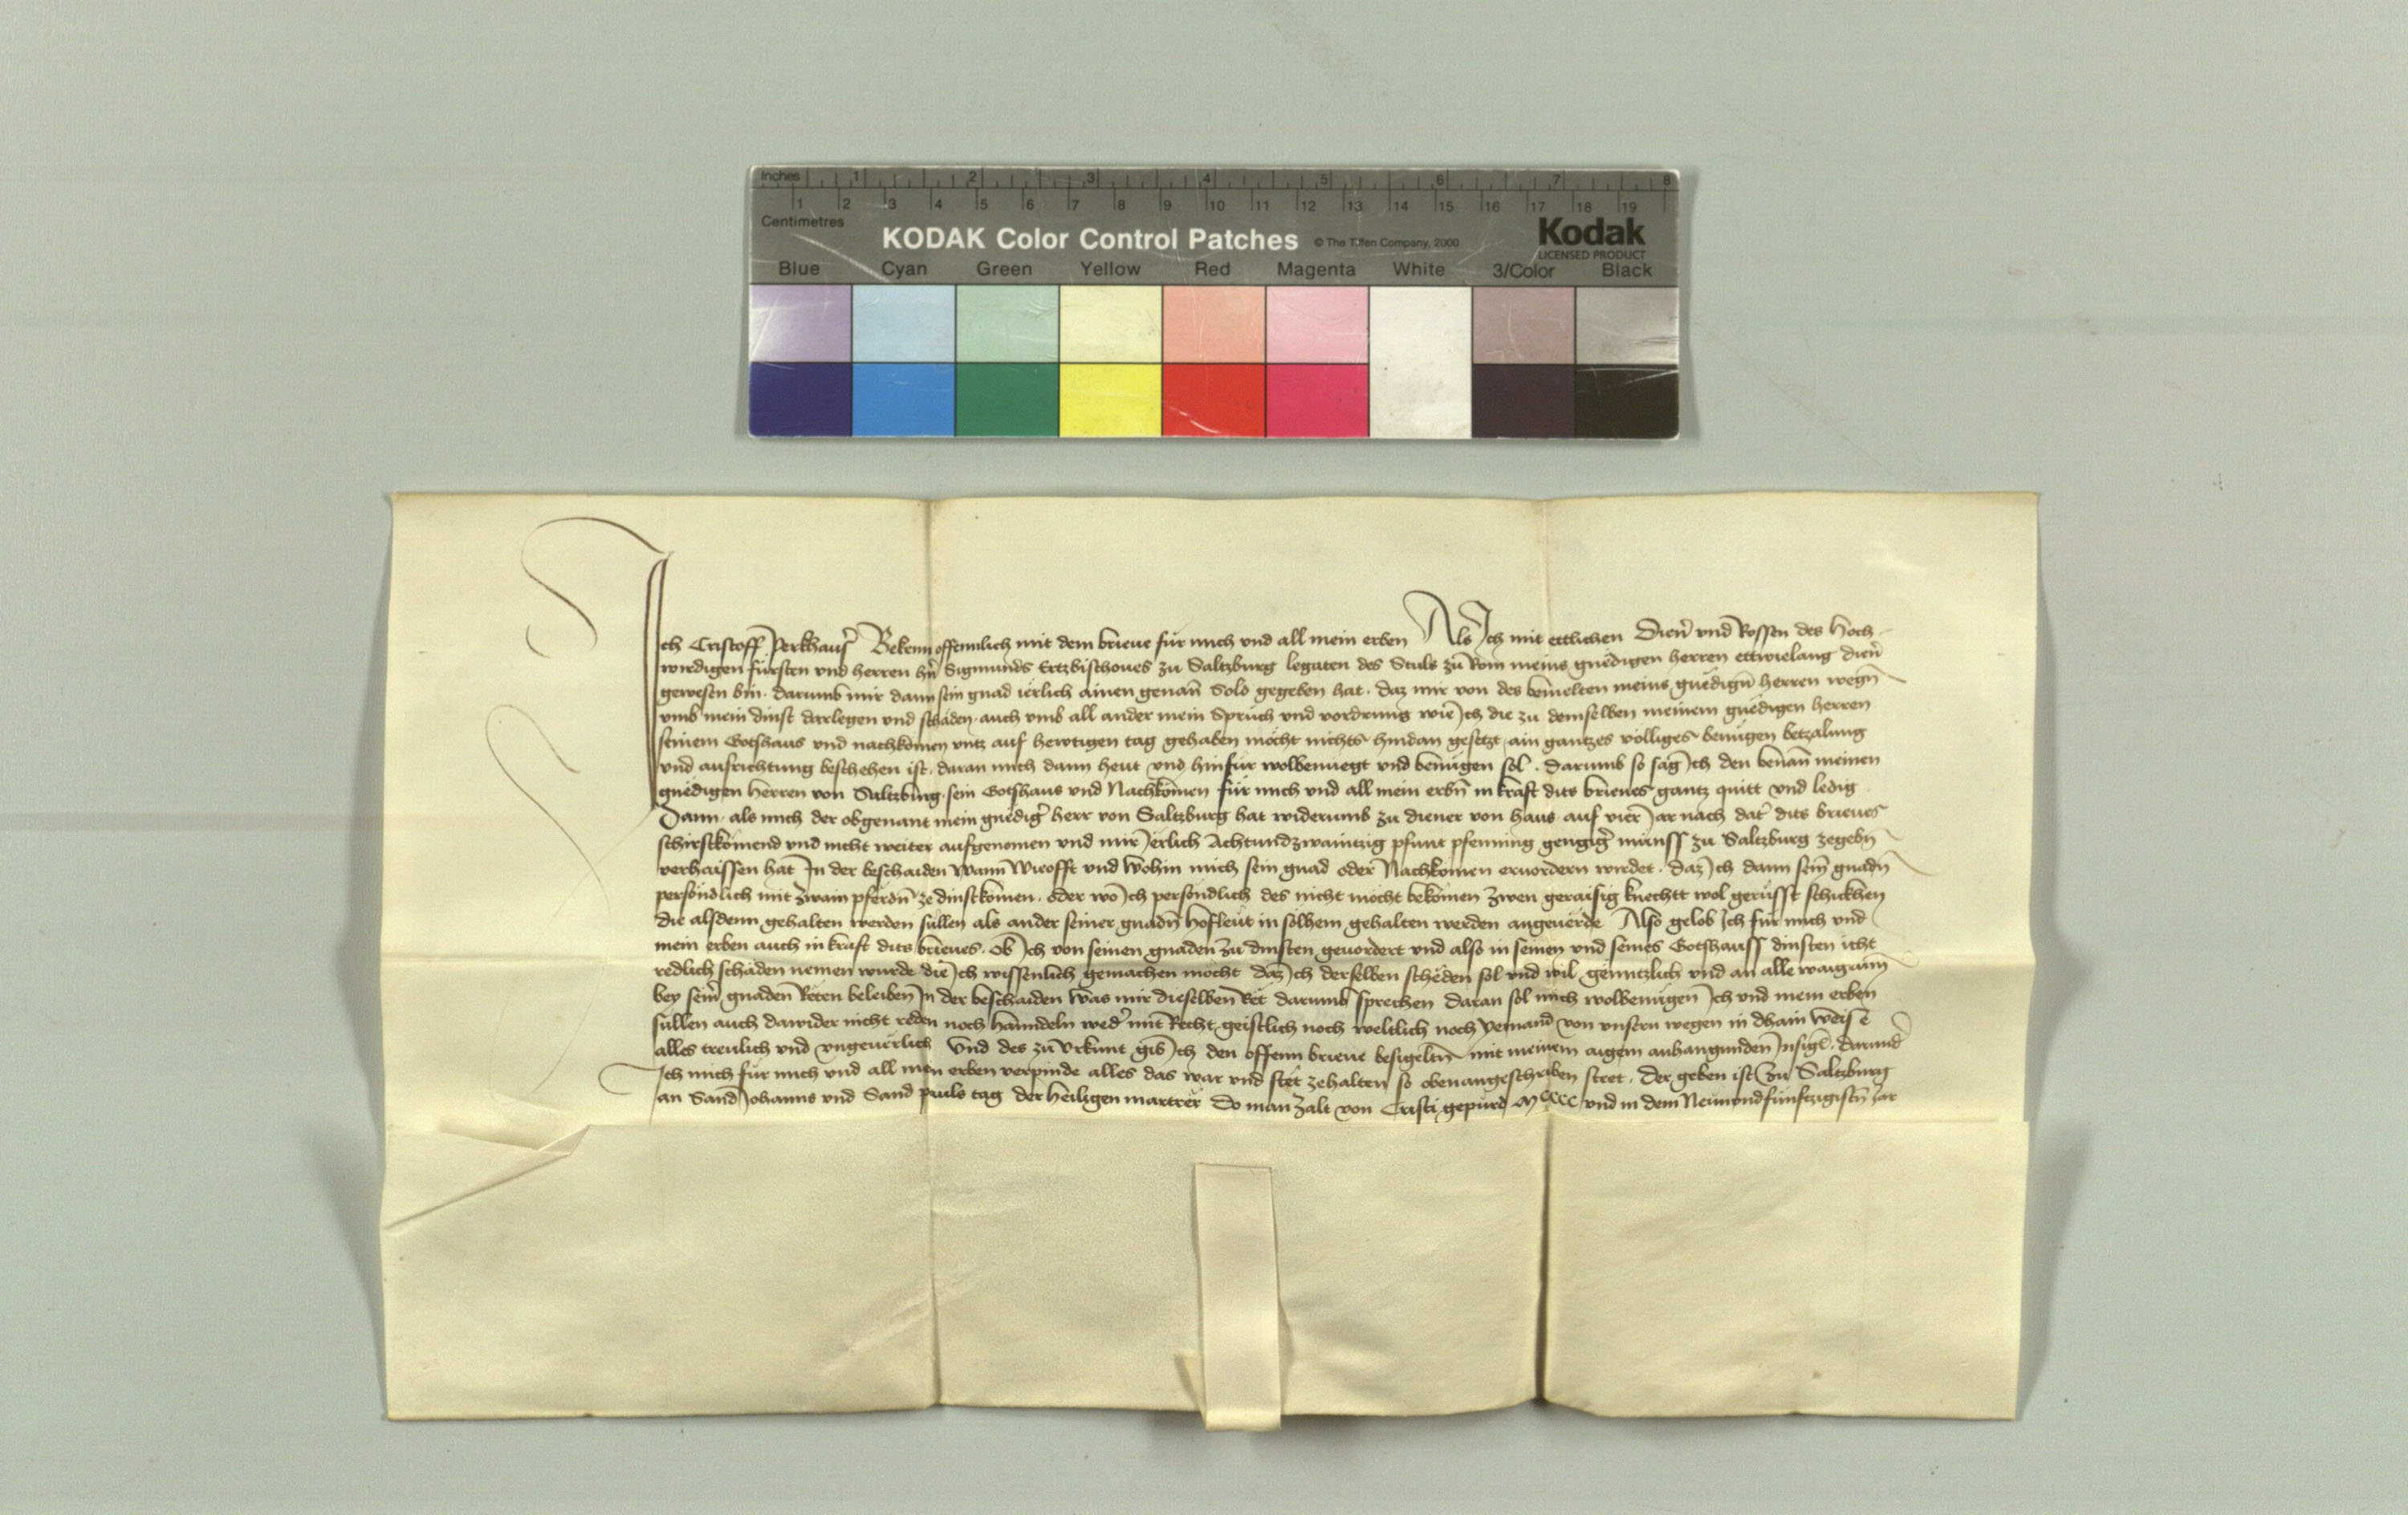 Inches 1 2 3 4 5 6 7 8
1 2 3 4 5 6 7 8 9 10 11 12 13 14 15 16 17 18 19
Centimetres
KODAK Color Control Patches © The Tiffen Company, 2000 Kodak
LICENSED PRODUCT
Blue Cyan Green Yellow Red Magenta White 3/Color Black
Ich Cristoff Perkhaus̉ Bekenn offennlich mit dem brieue für mich vnd all mein erben Als Ich mit ettlichen Dien̉ vnd Rossen des Hoch
wirdigen fürsten vnd herren hn̉ Sigmunds Ertzbischoues zu Saltzburg legaten des Stuls zu Rom meins gnedigen herren ettwielang dien̉
gewesen bin. darumb mir dann sein gnad ierlich ainen genan̄ Sold gegeben hat. daz mir von des bemelten meins gnedign̄ herren wegn̄
vmb mein dinst darlegen vnd schäden. auch vmb all ander mein Spruch vnd vordrung wie Ich die zu demselben meinem gnedigen herren
seinem Gotshaus vnd nachkomen vntz auf hewtigen tag gehaben möcht nichts hindan gesetzt ain gantzes völliges benügen betzalung
vnd ausrichtung beschehen ist. daran mich dann heut vnd hinfür wolbenuegt vnd benügen sol. Darumb so sag Ich den benan̄ meinen
gnedigen herren von Saltzburg. sein Gotshaus vnd Nachkomen für mich vnd all mein erbn̄ in kraft dits brieues gantz quitt vnd ledig
Dann als mich der obgenant mein gnedig̉ herr von Saltzburg hat widerumb zu diener von haus auf vier Jar nach dat̉ dits brieues
schirstkomend vnd nicht weiter aufgenomen vnd mir Jerlich Achtundzwaintzig pfunt pfenning gengig̉ münss zu Saltzburg zegebn̄
verhaissen hat In der beschaiden Wann Wieofft vnd Wohin mich sein gnad oder Nachkomen eruordern wirdet. daz Ich dann sein̄ gnadn̄
persöndlich mit zwain pferdn̄ ze dinst komen. oder wo Ich persöndlich des nicht möcht bekomen zwen geraisig knechtt wol gerüsst schickhen
die alsdenn gehalten werden süllen als ander seiner gnadn̄ hofleut in solhem gehalten werden angeuerde Also gelob Ich für mich vnd
mein erben auch in kraft dits brieues. Ob Ich von seinen gnaden zu dinsten geuordert vnd also in seinen vnd seines Gotshauss dinsten icht
redlich schäden nemen wurde die Ich wissenlich gemachen möcht daz Ich derselben scheden sol vnd wil genntzlich vnd an alle waigrun̄
bey sein̉ gnaden Reten beleiben In der beschaiden Was mir dieselben Ret darumb sprechen daran sol mich wolbenügen Ich vnd mein erben
süllen auch dawider nicht reden noch hanndeln wed̉ mit Recht geistlich noch weltlich noch yemand von vnsern wegen in dhain weise
alles treulich vnd vngeuerlich Vnd des zu Vrkunt gib Ich den offenn brieue besigelten mit meinem aigem anhangunden Insigl̄. darund̉
Ich mich für mich vnd all mein erben verpinde alles das war vnd stet zehalten so obenangeschriben steet. Der geben ist Zu Saltzburg
an Sand Johanns vnd Sand pauls tag der heiligen martrer Do man zalt von Cristi gepurd Mcccc vnd in dem Neünondfünftzigistn̄ Jar